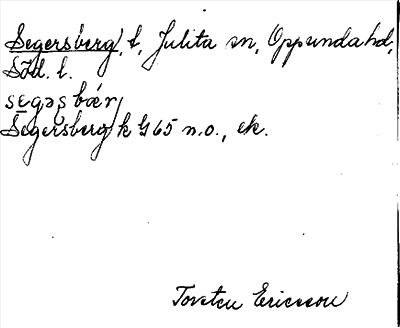 Segersberg, t, Julita sn, Oppunda hd,
Söd. l.
segəșbær,
Segersberg k G 65 n.o., ek.
Torsten Ericsson